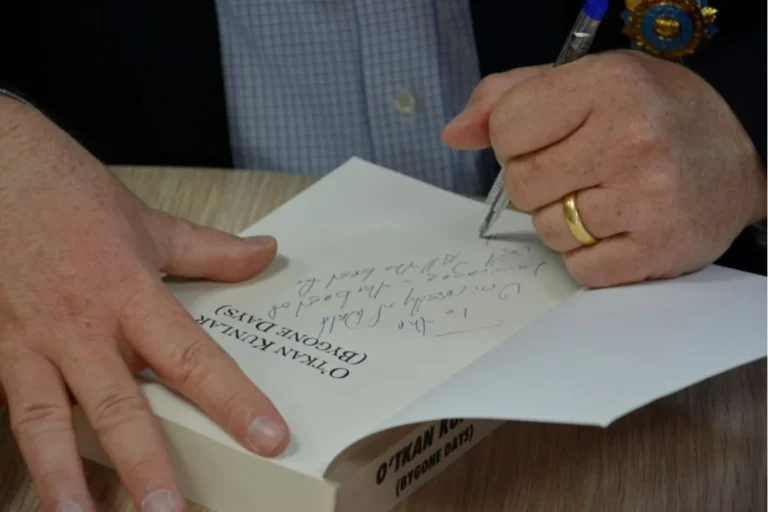 O'TKAN KUNLAR
(BYGONE DAYS)
To the
University of World
Languages - the best of
All the best
O'TKAN KU
(BYGONE DAYS)